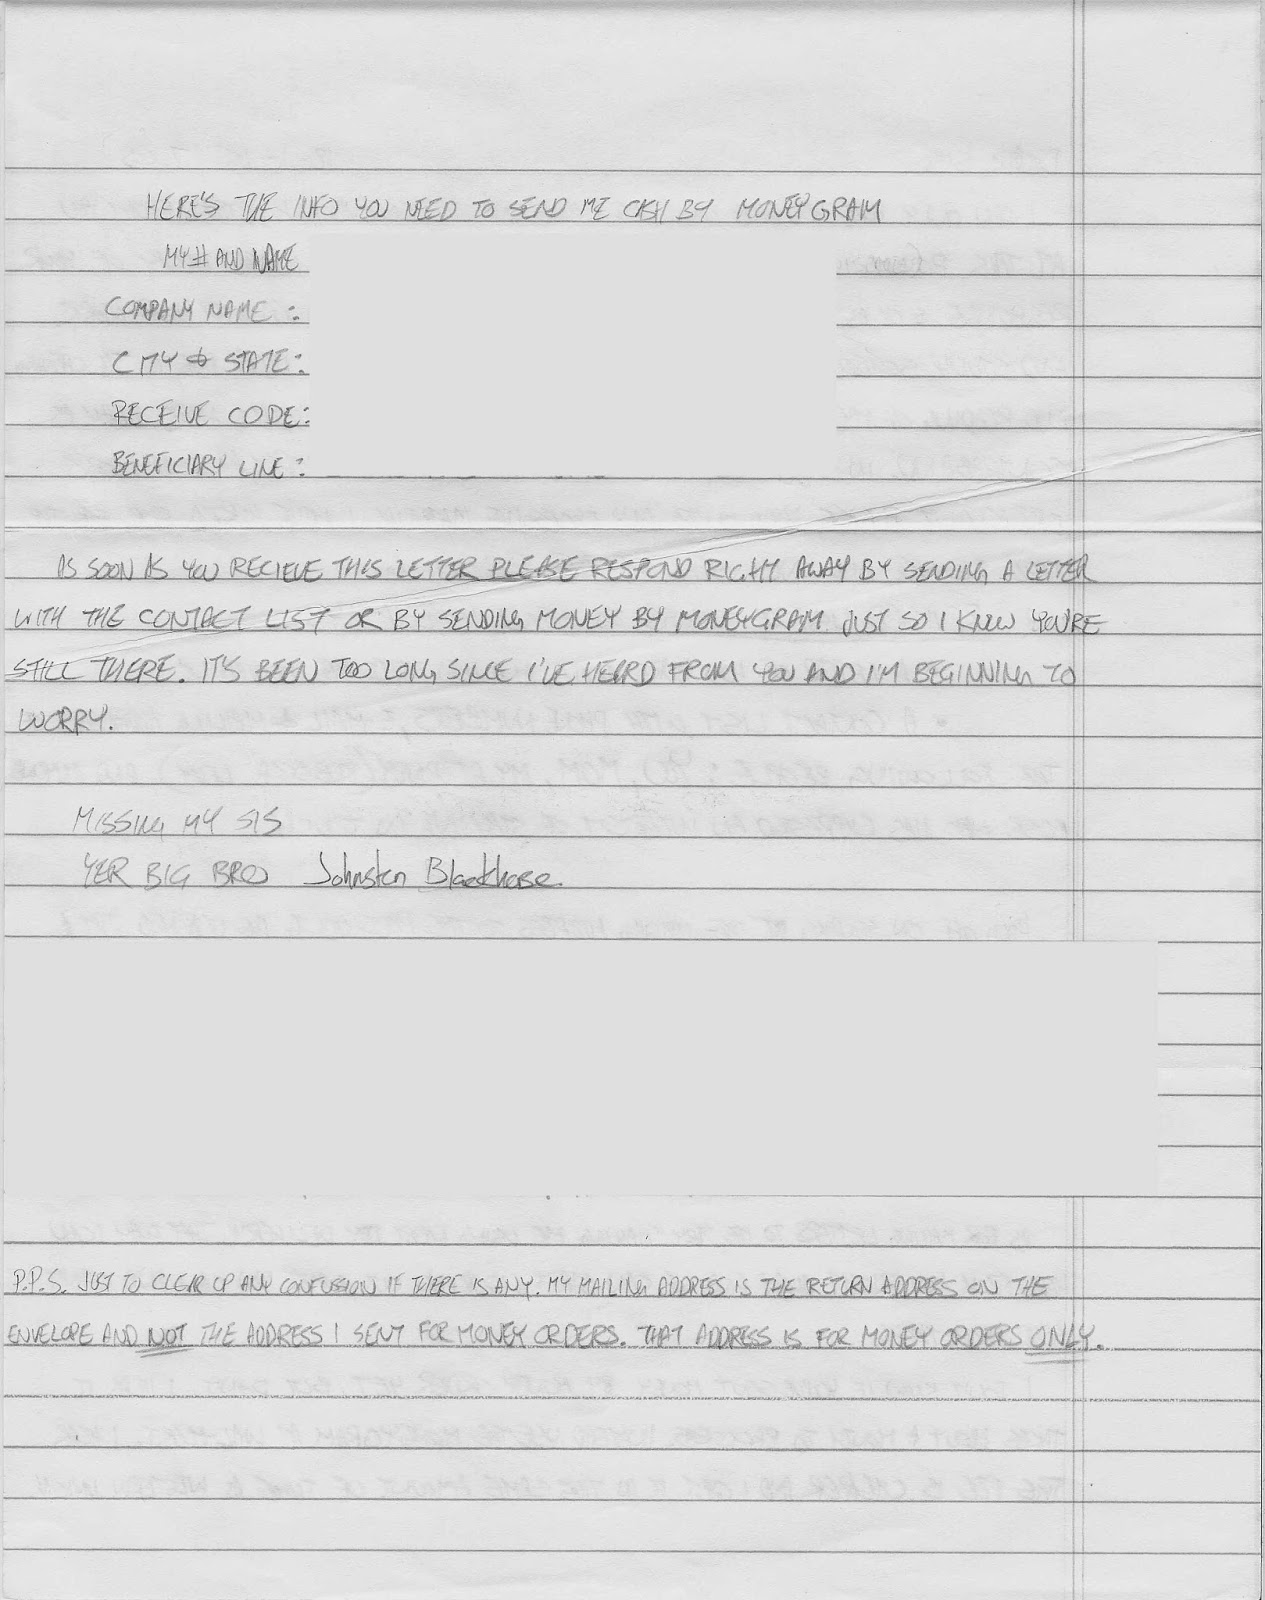 HERE'S THE INFO YOU NEED TO SEND ME CASH BY MONEYGRAM
MY # AND NAME
COMPANY NAME :
CITY & STATE:
RECEIVE CODE:
BENEFICIARY LINE :
AS SOON AS YOU RECIEVE THIS LETTER PLEASE RESPOND RIGHT AWAY BY SENDING A LETTER
WITH THE CONTACT LIST OR BY SENDING MONEY BY MONEYGRAM JUST SO I KNOW YOU'RE
STILL THERE. IT'S BEEN TOO LONG SINCE I'VE HEARD FROM YOU AND I'M BEGINNING TO
WORRY.
MISSING MY SIS
YER BIG BRO Johnston
P.P.S. JUST TO CLEAR UP ANY CONFUSSION IF THERE IS ANY. MY MAILING ADDRESS IS THE RETURN ADDRESS ON THE
ENVELOPE AND NOT THE ADDRESS I SENT FOR MONEY ORDERS. THAT ADDRESS IS FOR MONEY ORDERS ONLY.